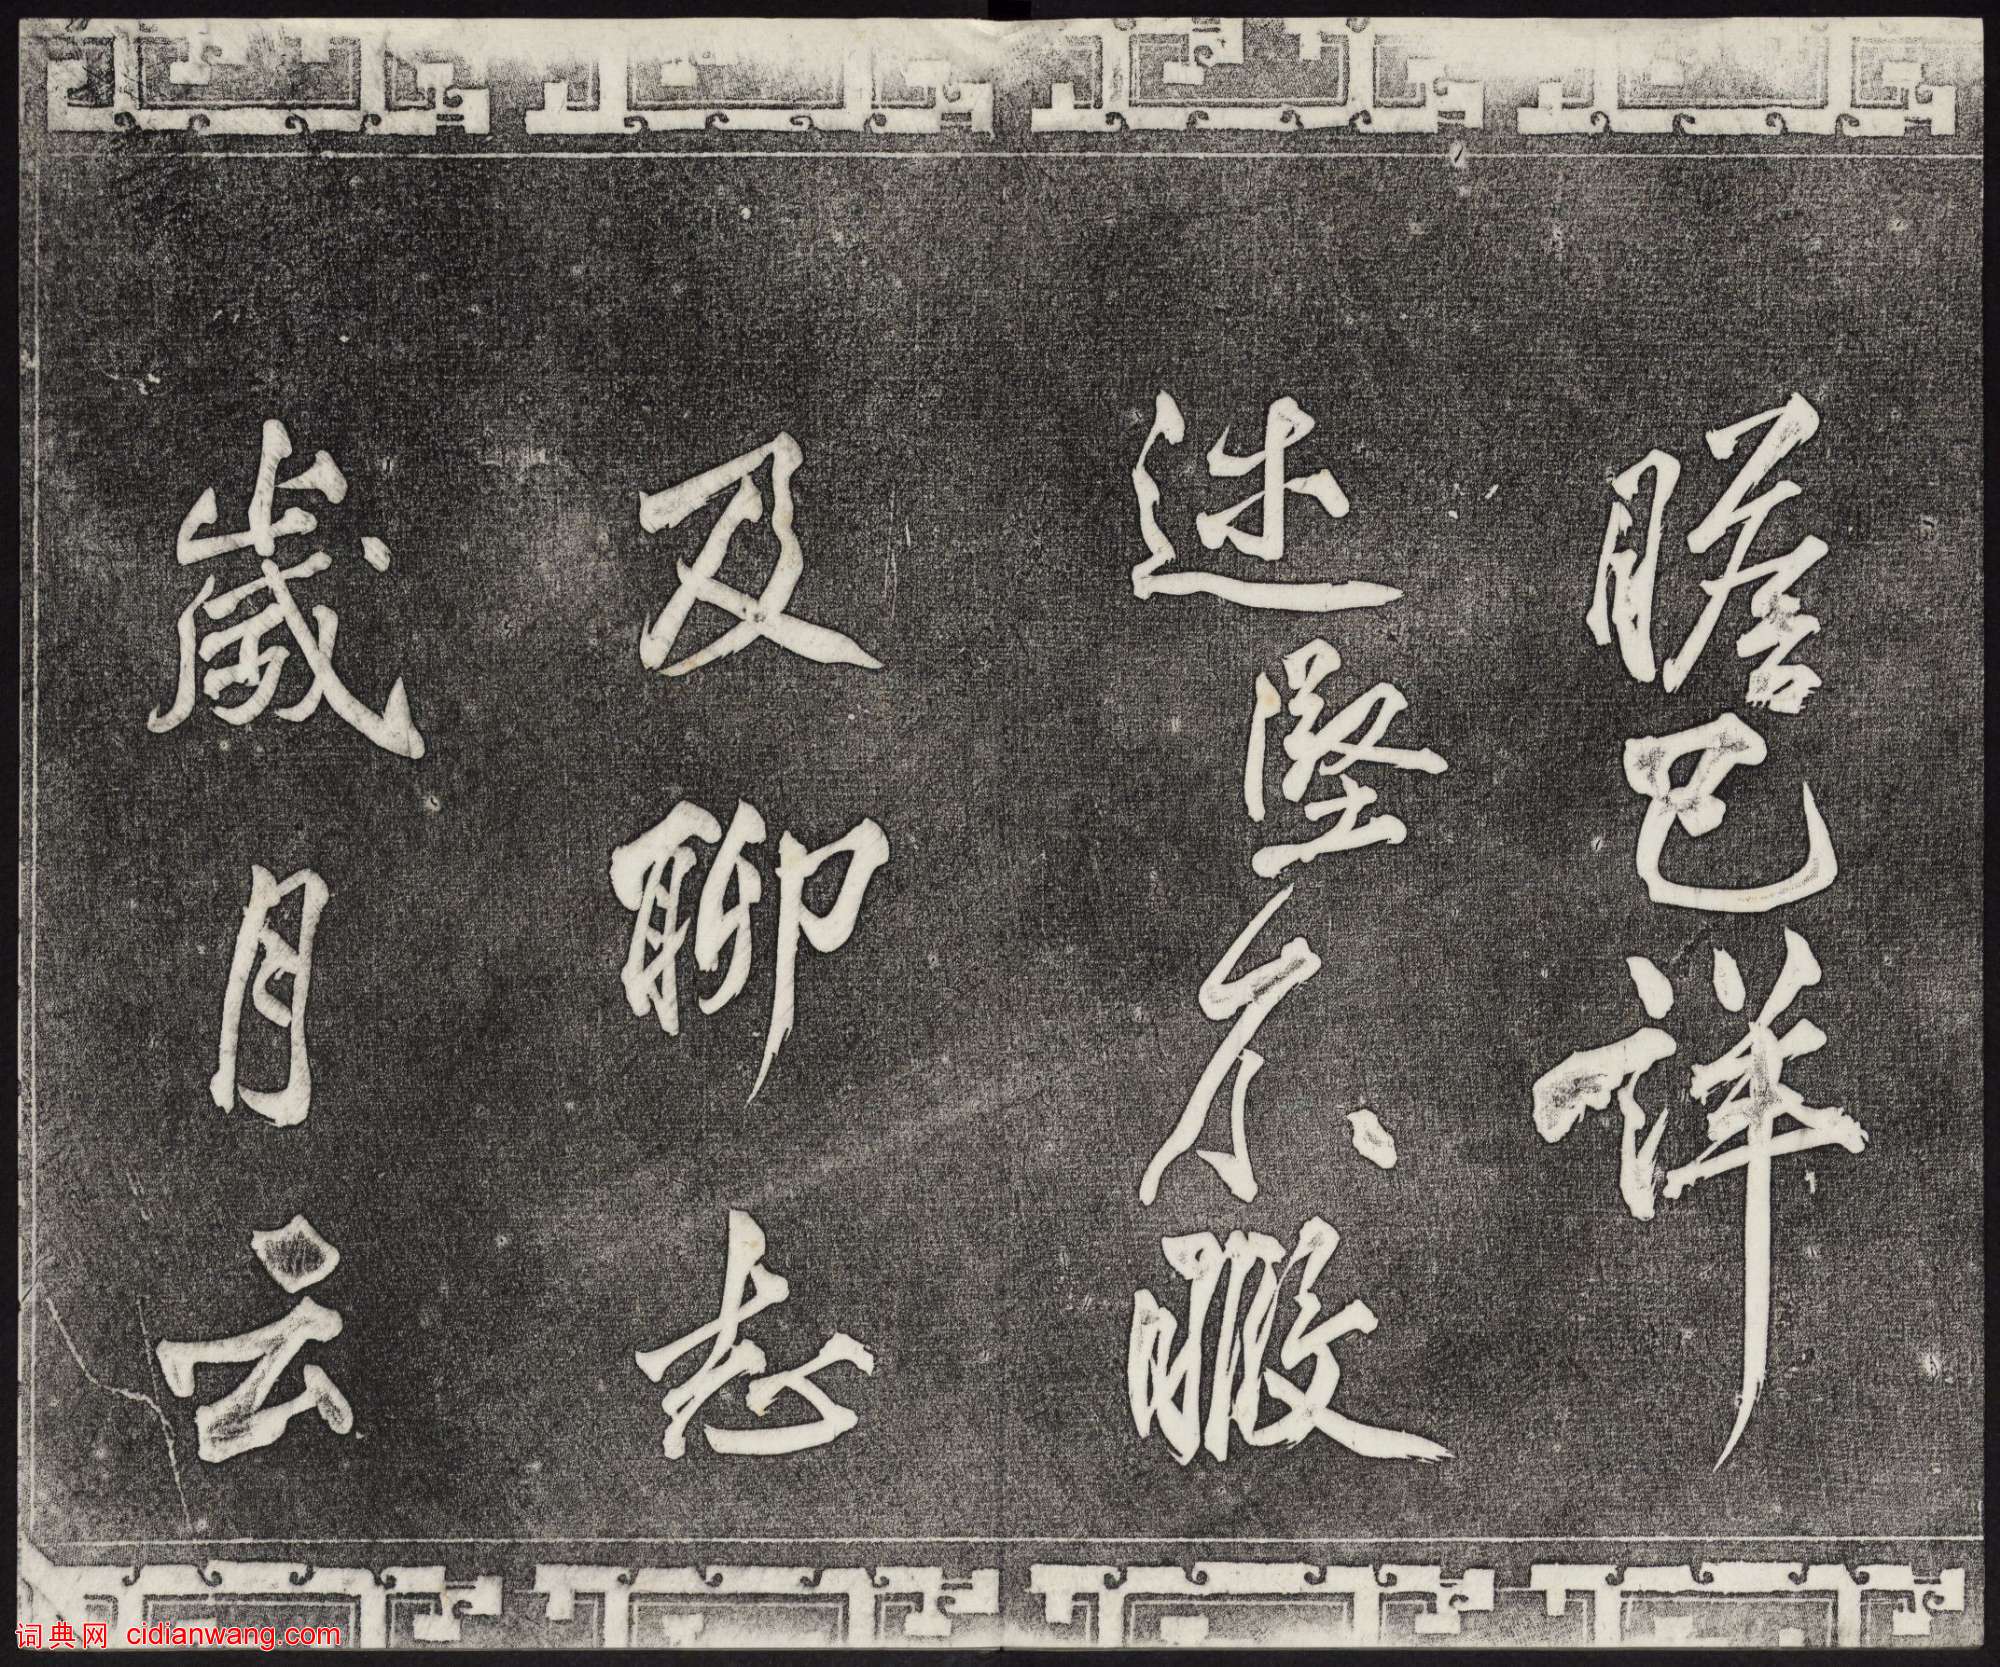 瞻已詳
述堅不暇
及聊志
歲月云
词典网 cidianwang.com